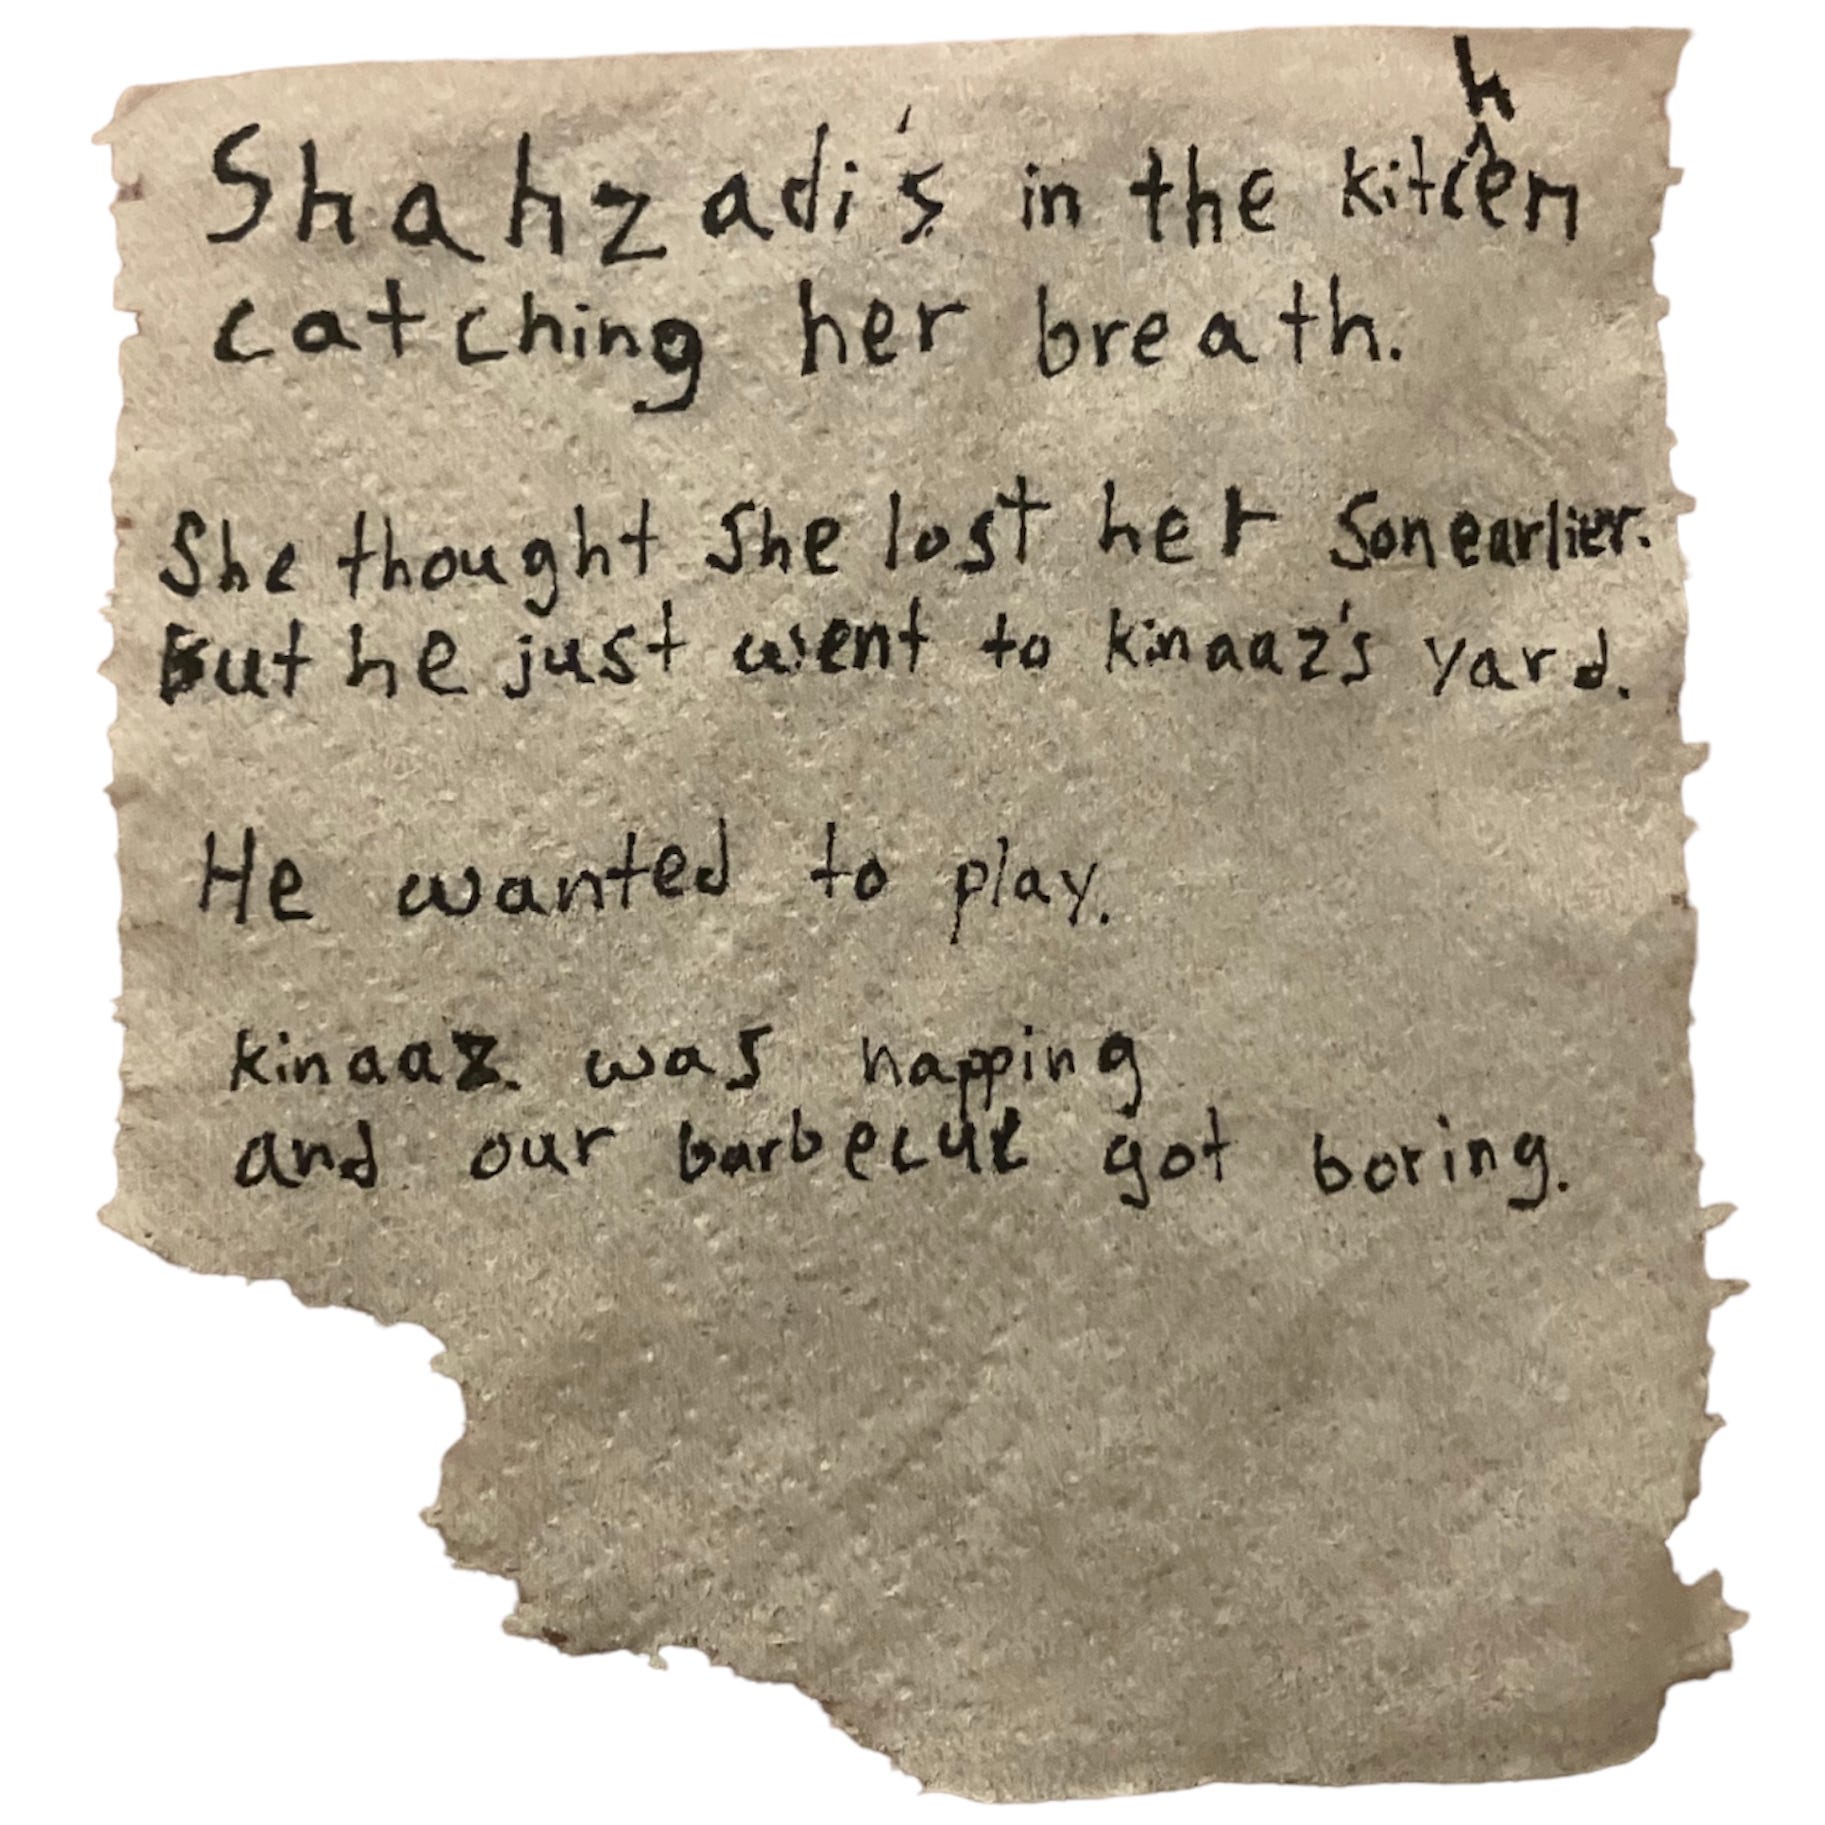 Shahzadi's in the kitchen
catching her breath.
She thought she lost her son earlier.
But he just went to kinaaz's yard.
He wanted to play.
kinaaz was napping
and our barbecue got boring.